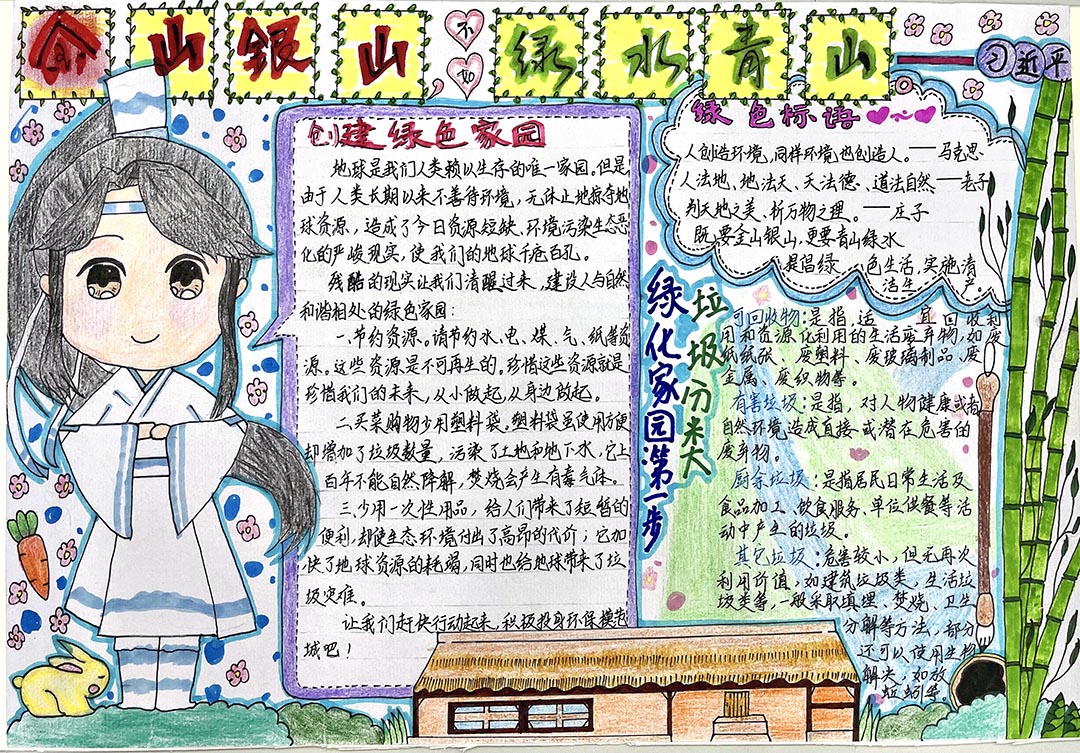 金山银山
不如
,
绿水青山
习近平
创建绿色家园
地球是我们人类赖以生存的唯一家园,但是
由于人类长期以来不善待环境,无休止地掠夺地
球资源,造成了今日资源短缺、环境污染生态恶
化的严峻现实,使我们的地球千疮百孔。
残酷的现实让我们清醒过来,建设人与自然
和谐相处的绿色家园:
一.节约资源。请节约水、电、煤、气、纸等资
源。这些资源是不可再生的。珍惜这些资源就是
珍惜我们的未来,从小做起,从身边做起。
二.买菜购物少用塑料袋。塑料袋虽使用方便
却增加了垃圾数量,污染了土地和地下水,它上
百年不能自然降解,焚烧会产生有毒气体。
三.少用一次性用品,给人们带来了短暂的
便利,却使生态环境付出了高昂的代价;它加
快了地球资源的耗竭,同时也给地球带来了垃
圾灾难。
让我们赶快行动起来,积极投身环保模范
城吧!
绿色标语
人创造环境,同样环境也创造人。——马克思
人法地、地法天、天法德、道法自然——老子
判天地之美、析万物之理。——庄子
既要金山银山,更要青山绿水
提倡绿色生活,实施清
洁生产
垃圾分类
绿化家园第一步
可回收物:是指适宜回收利
用和资源化利用的生活废弃物,如废
纸纸张、废塑料、废玻璃制品、废
金属、废织物等。
有害垃圾:是指,对人物健康或者
自然环境造成直接或潜在危害的
废弃物。
厨余垃圾:是指居民日常生活及
食品加工、饮食服务、单位供餐等活
动中产生的垃圾。
其它垃圾:危害较小,但无再次
利用价值,如建筑垃圾类,生活垃
圾类等,一般采取填埋、焚烧、卫生
分解等方法,部分
还可以使用生物
解决,如放
蚯蚓等